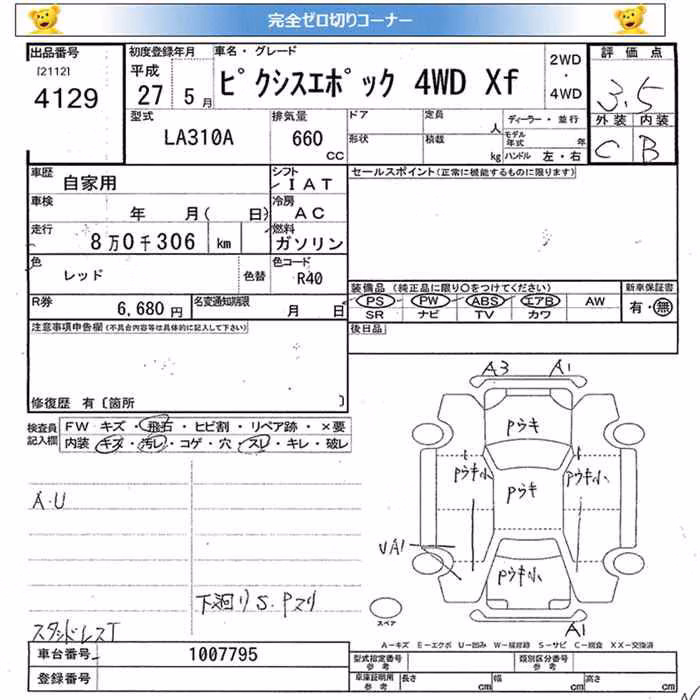 完全ゼロ切りコーナー
出品番号 初度登録年月 車名・グレード 評価点
[2112] 平成 2WD
4129 27 5月 ピクシスエポック 4WD Xf ・ 3.5
4WD
型式 排気量 ドア 定員 人 ディーラー・並行 外装 内装
LA310A 660 cc 形状 積載 kg モデル年式 年 C B
ハンドル 左・右
車歴 自家用 シフト IAT セールスポイント(正常に機能するものに限ります)
車検 年 月( 日) 冷房 AC
走行 8万0千306 km 燃料 ガソリン
色 レッド 色替 色コード R40
装備品(純正品に限り○をつけてください) 新車保証書
R券 6,680円 名変通知期限 月 日 PS PW ABS エアB AW 有・無
SR ナビ TV カワ
注意事項申告欄(不具合内容等は具体的に記入して下さい) 後日品
修復歴 有〔箇所 〕
検査員記入欄 FW キズ・飛石・ヒビ割・リペア跡・×要
内装 キズ・汚レ・コゲ・穴・スレ・キレ・破レ
A3 A1
Pウキ
Pウキ小 Pウキ Pウキ小
A・U
UA1
Pウキ小
下廻りS.Pスリ
スペア
A1
スタッドレスT
A-キズ E-エクボ U-凹み W-補修跡 S-サビ C-腐食 XX-交換済
車台番号 1007795 型式指定番号 参考 類別区分番号 参考
登録番号 車庫証明用 参考 長さ cm 幅 cm 高さ cm